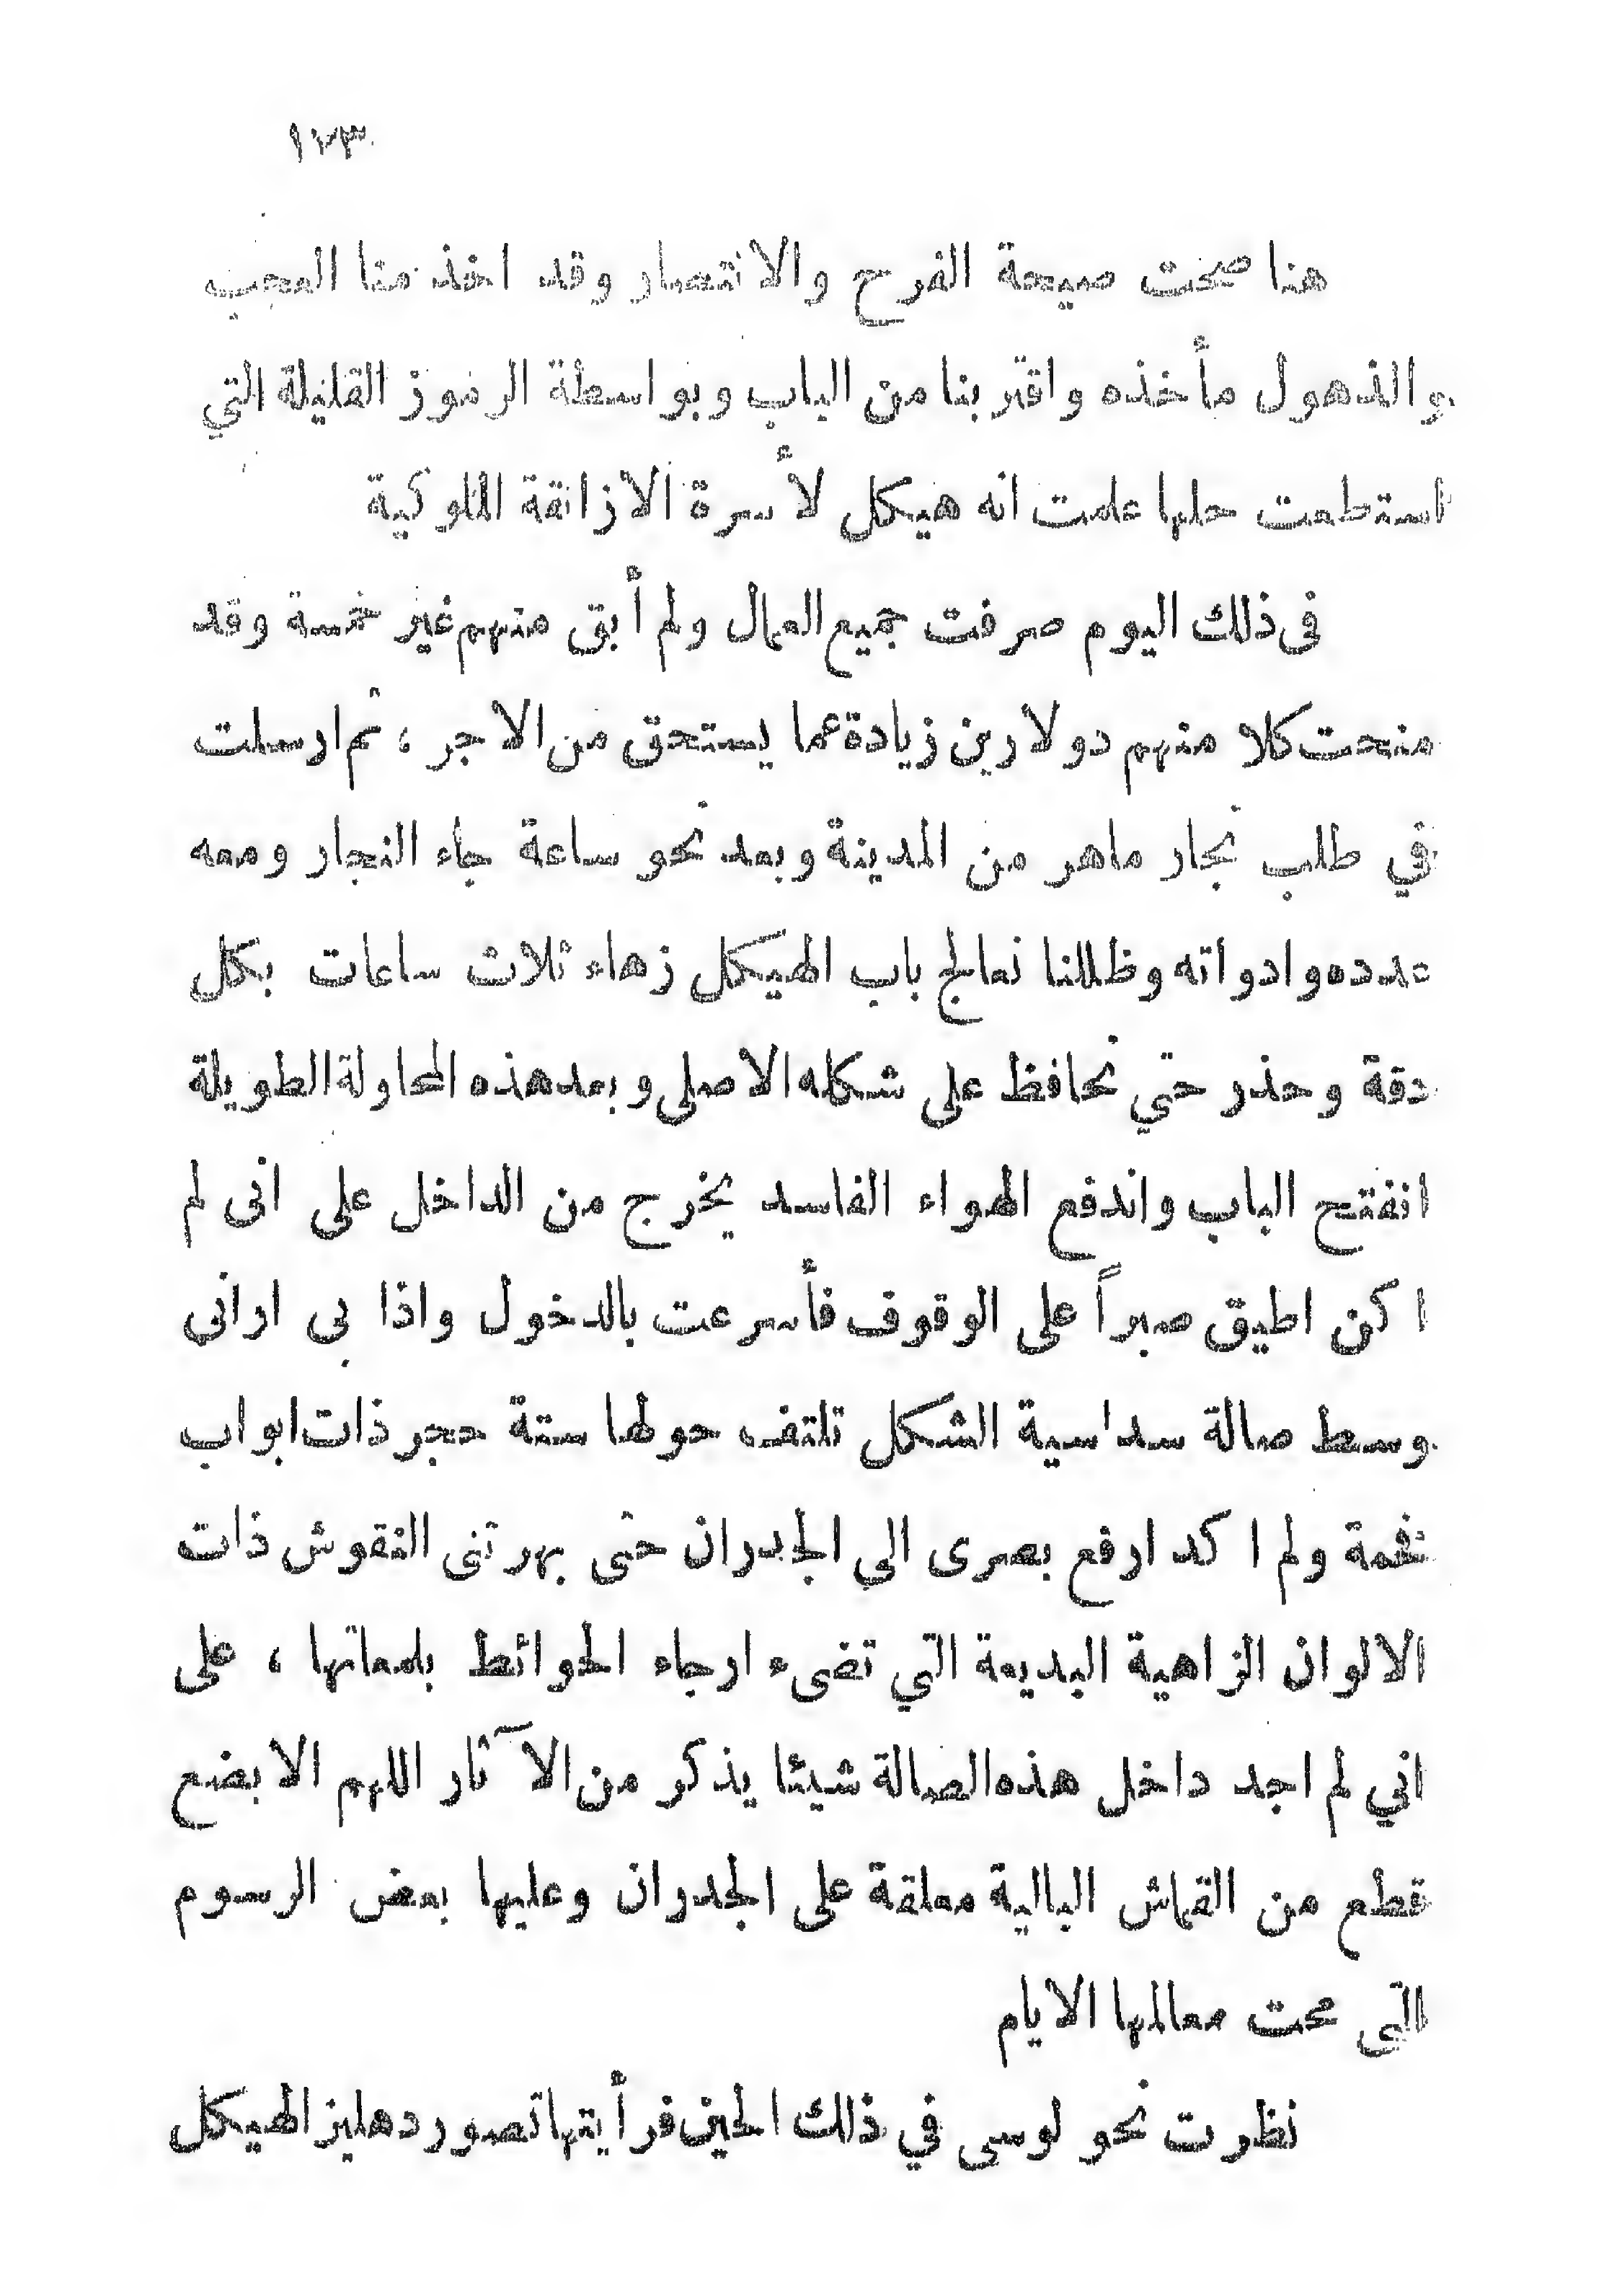 ١٧٣
هنا صحت صيحة الفرح والانتصار وقد اخذ منا العجب
والذهول مأخذه واقتربنا من الباب وبواسطة الرموز القليلة التي
استطعت حلها علمت انه هيكل لأسرة الازاتقة الملوكية
فى ذلك اليوم صرفت جميع العمال ولم أبق منهم غير خمسة وقد
منحت كلا منهم دولارين زيادة عما يستحق من الاجر ، ثم ارسلت
في طلب نجار ماهر من المدينة وبعد نحو ساعة جاء النجار ومعه
عدده وادواته وظللنا نعالج باب الهيكل زهاء ثلاث ساعات بكل
دقة وحذر حتي نحافظ على شكله الاصلى وبعد هذه المحاولة الطويلة
انفتح الباب واندفع الهواء الفاسد يخرج من الداخل على انى لم
اكن اطيق صبراً على الوقوف فأسرعت بالدخول واذا بى ارانى
وسط صالة سداسية الشكل تلتف حولها ستة حجر ذات ابواب
فخمة ولم اكد ارفع بصرى الي الجدران حتى بهرتنى النقوش ذات
الالوان الزاهية البديعة التي تضىء ارجاء الحوائط بلمعاتها ، على
اني لم اجد داخل هذه الصالة شيئا يذكر من الآثار اللهم الا بضع
قطع من القماش البالية معلقة على الجدران وعليها بعض الرسوم
التى محت معالمها الايام
نظرت نحو لوسى في ذلك الحين فرأيتها تصور دهليز الهيكل